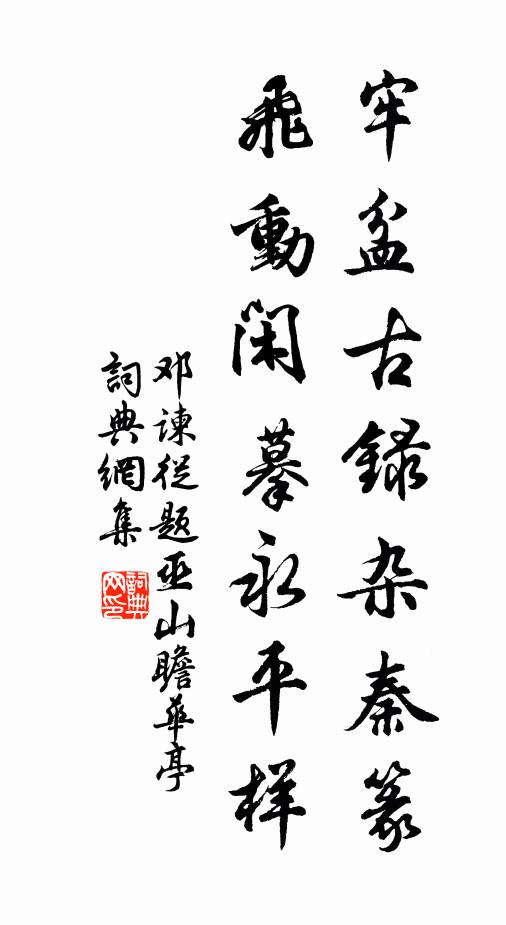 牢盆古録杂秦篆
飛動闲摹永平样
邓諫從题巫山瞻華亭
詞典網集
詞典
网印